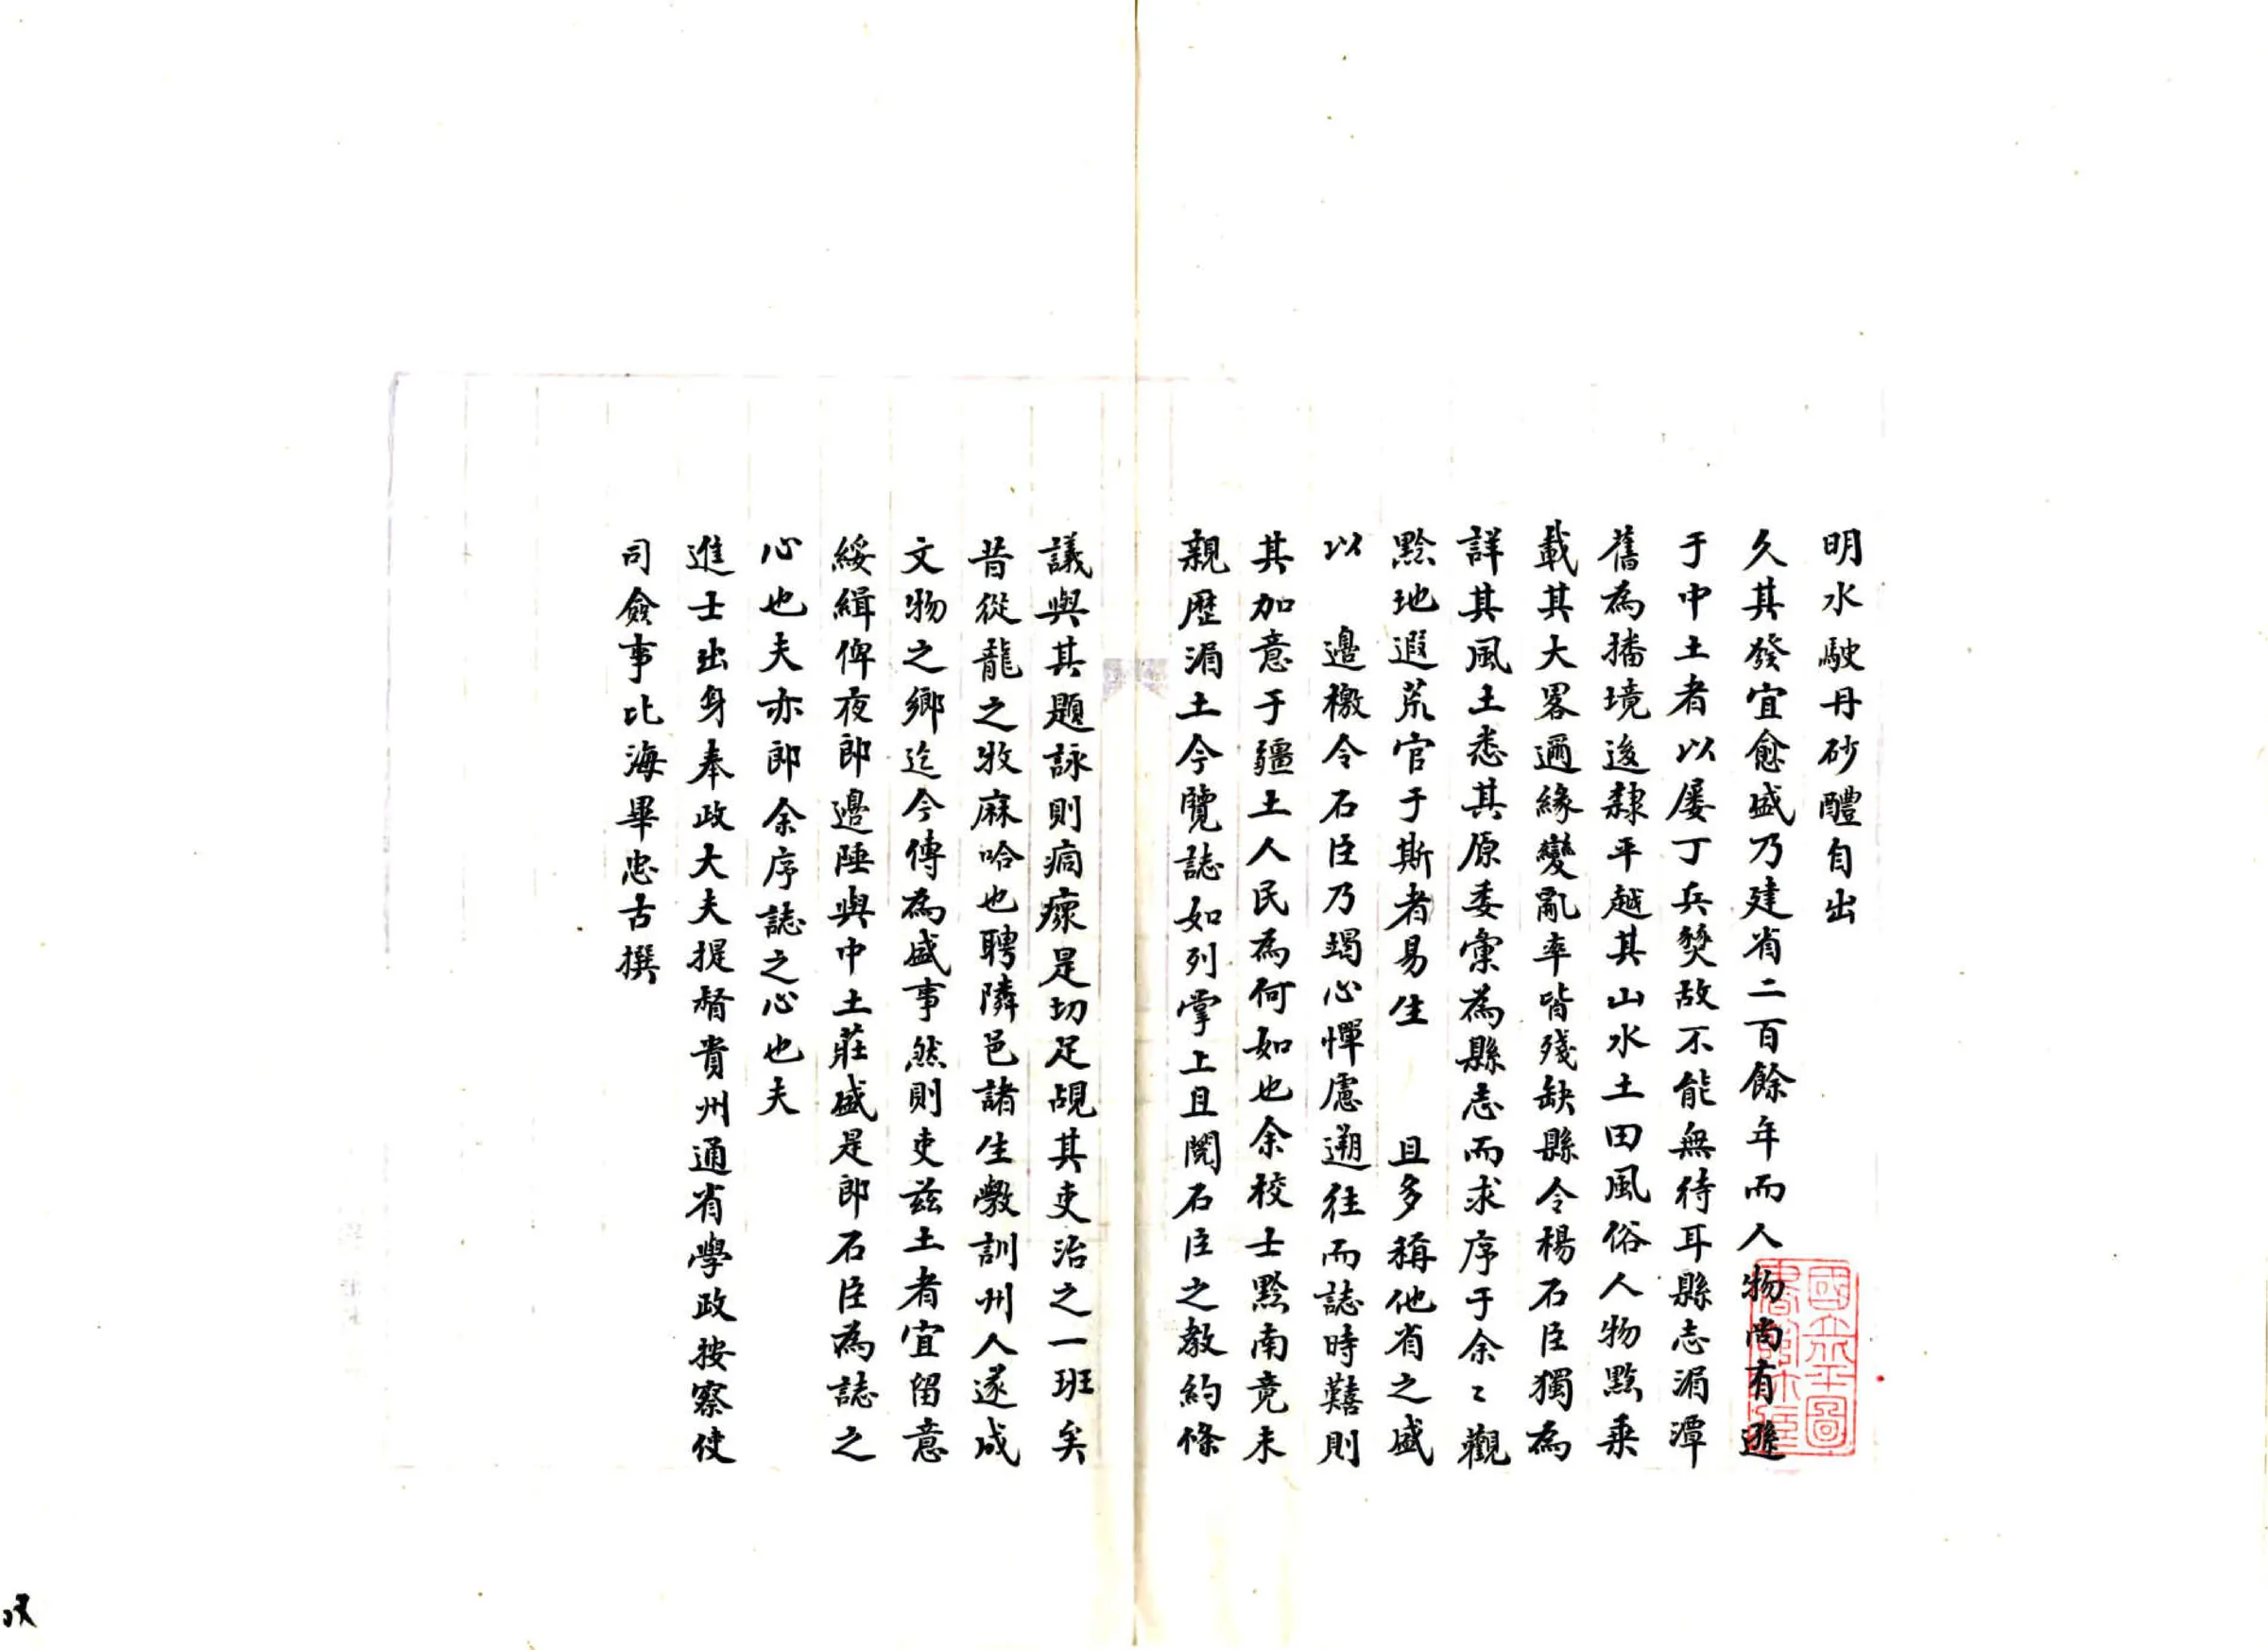 明水駛丹砂醴自出
久其發宜愈盛乃建省二百餘年而人物尚有遜
于中土者以屡丁兵燹故不能無待耳縣志湄潭
舊為播境後隸平越其山水土田風俗人物黔乘
載其大畧邇緣變亂率皆殘缺縣令楊石臣獨為
詳其風土悉其原委彙為縣志而求序于余〻觀
黔地遐荒官于斯者易生　且多稱他省之盛
以　邊檄令石臣乃竭心憚慮遡往而誌時囏則
其加意于疆土人民為何如也余校士黔南竟未
親歷湄土今覽誌如列掌上且閱石臣之教約條
議與其題詠則痌瘝是切足覘其吏治之一班矣
昔從龍之牧麻哈也聘隣邑諸生斆訓州人遂成
文物之鄉迄今傳為盛事然則吏茲土者宜留意
綏緝俾夜郎邊陲與中土莊盛是郎石臣為誌之
心也夫亦郎余序誌之心也夫
進士出身奉政大夫提督貴州通省學政按察使
司僉事比海畢忠吉撰
國立北平圖
書館收藏